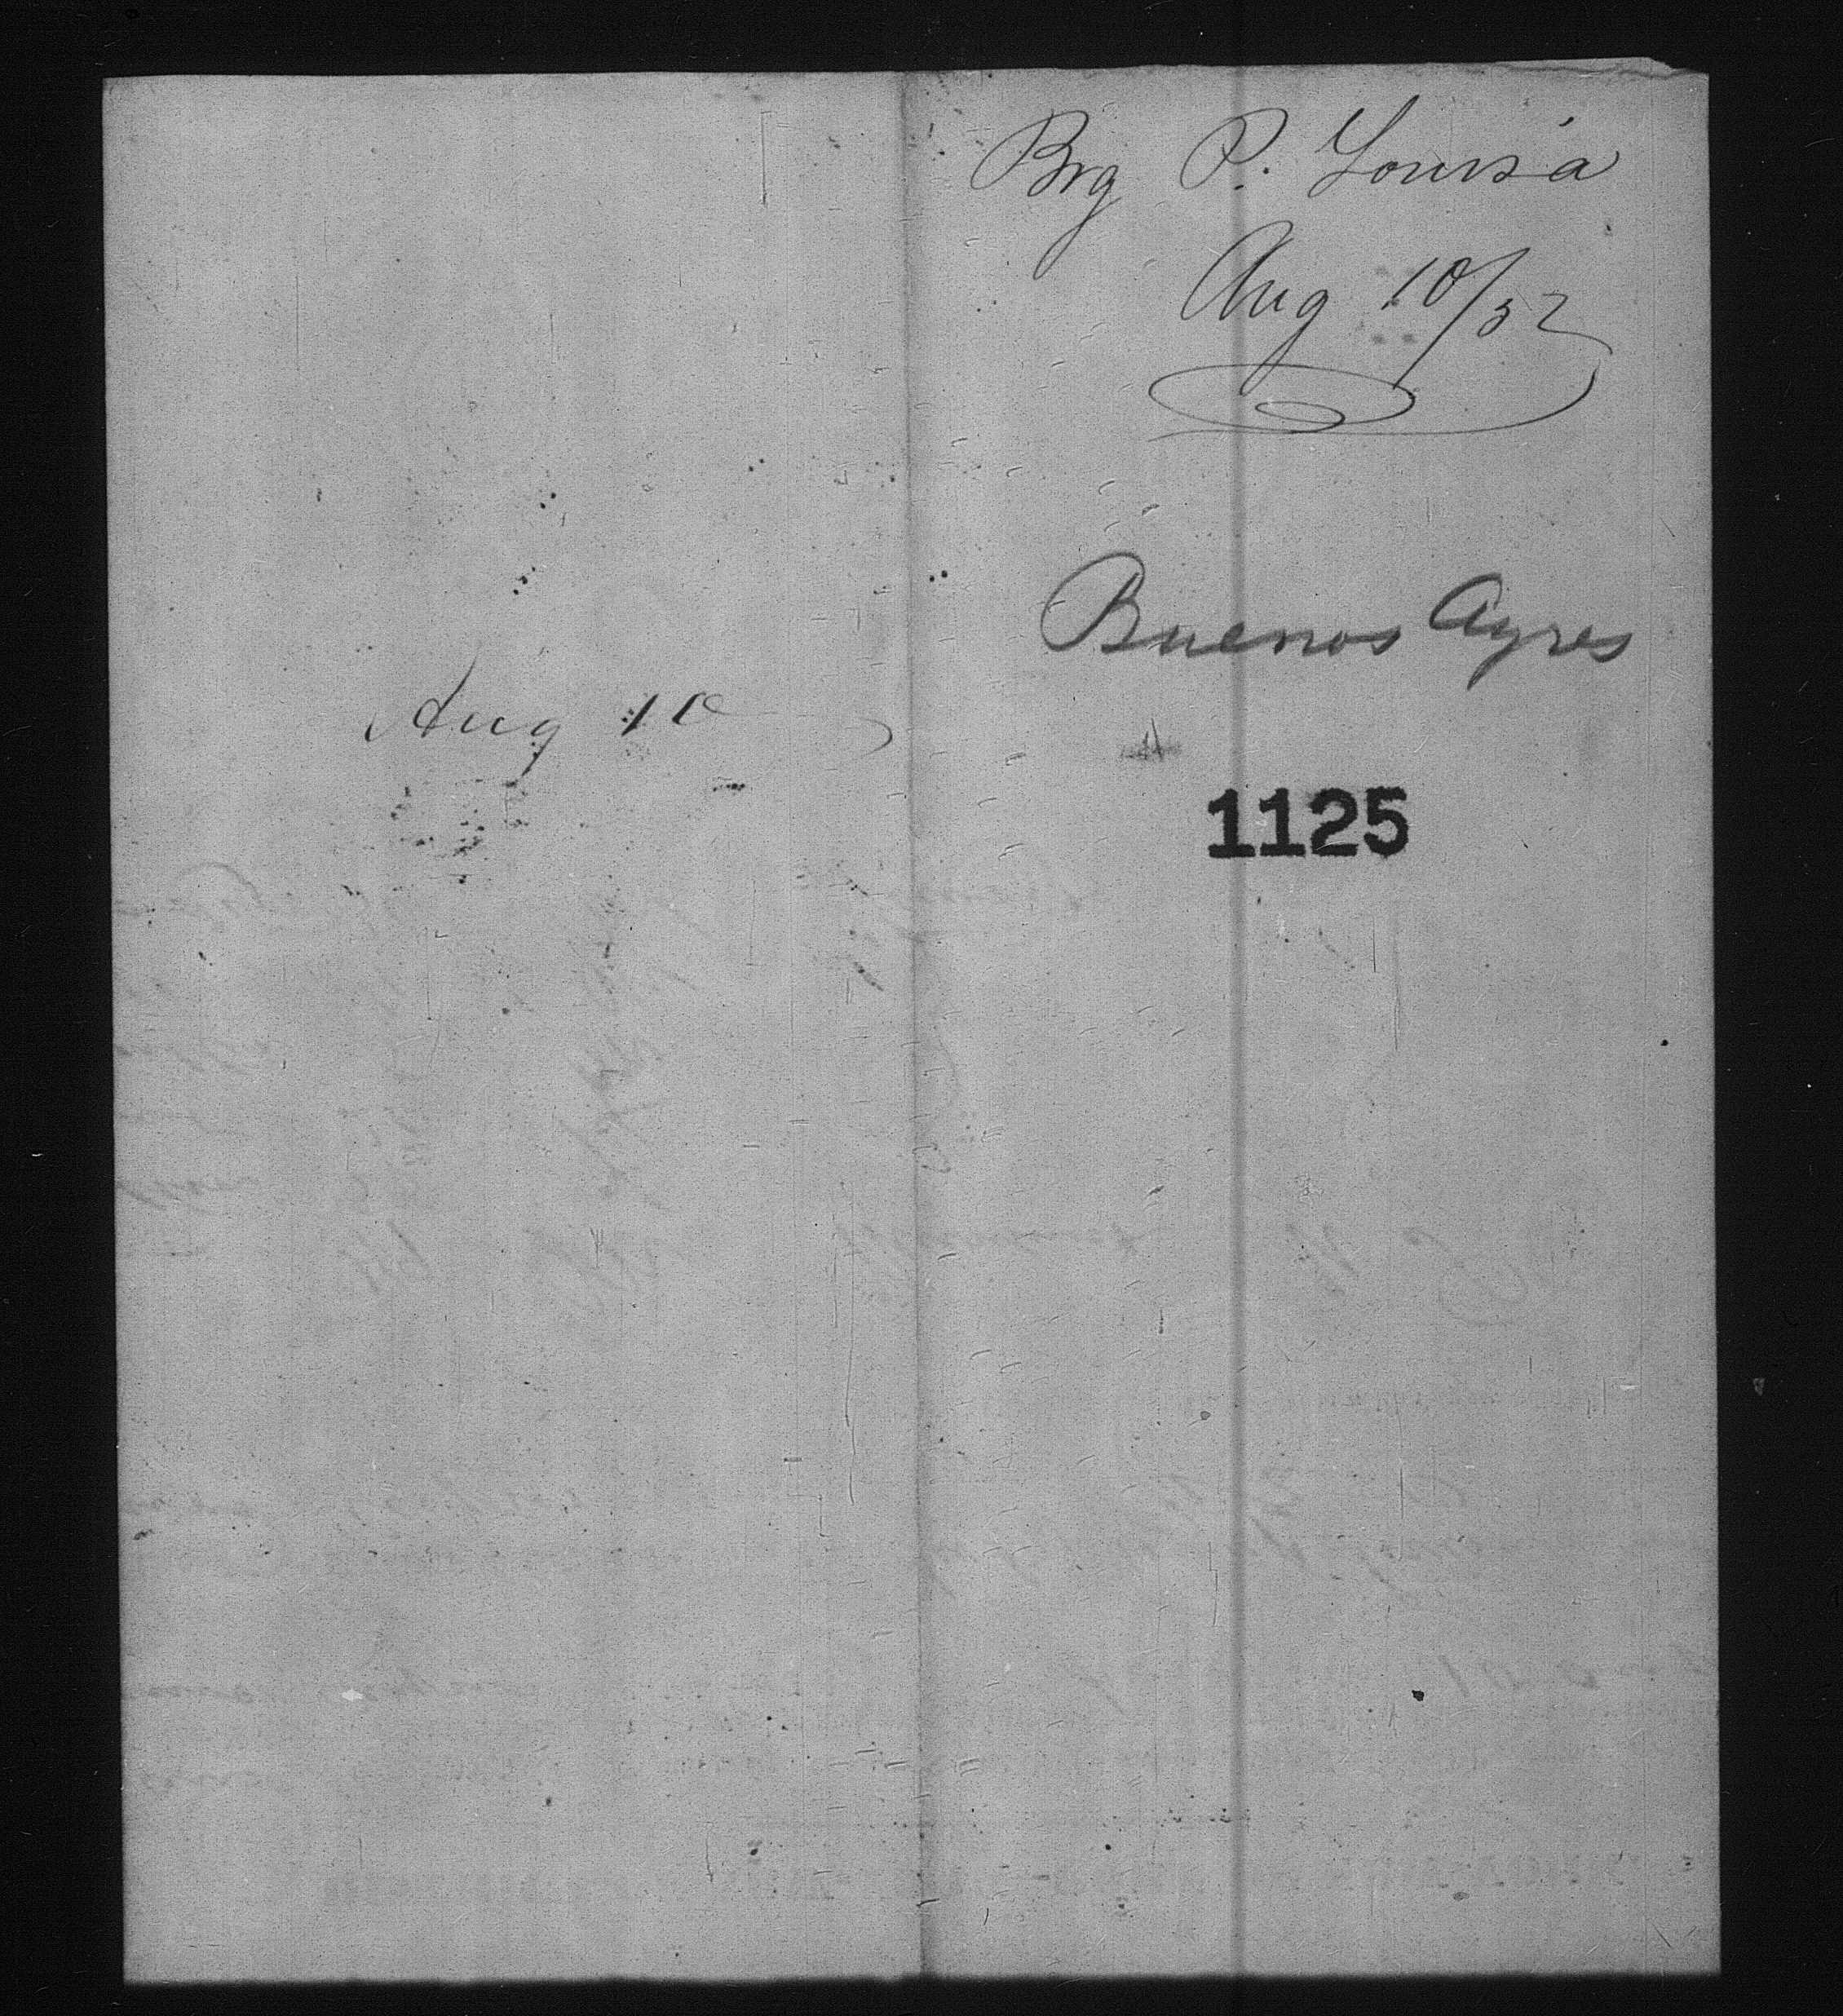 Brg P. Louisa
Aug 10/52
Buenos Ayres
Aug 10
1125